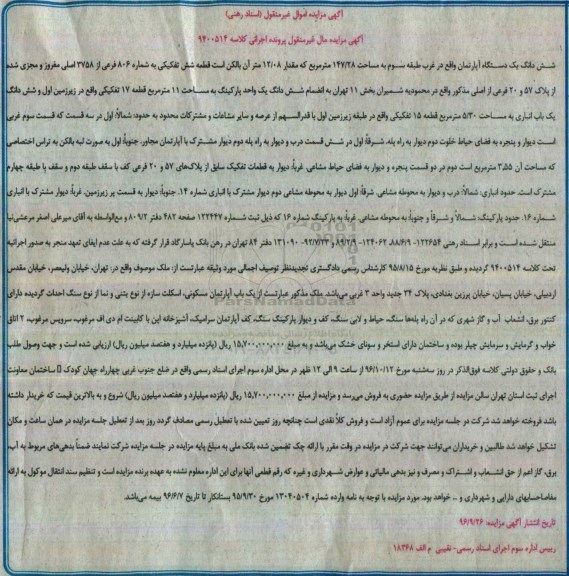 آگهی مزایده اموال غیرمنقول (اسناد رهنی)
آگهی مزایده مال غیرمنقول پرونده اجرائی کلاسه ۹۴۰۰۵۱۴
شــش دانگ یک دســتگاه آپارتمان واقع در غرب طبقه ســوم به مساحت ۱۴۷/۲۸ مترمربع که مقدار ۱۲/۰۸ متر آن بالکن است قطعه شش تفکیکی به شماره ۸۰۶ فرعی از ۳۷۵۸ اصلی مفروز و مجزی شده
از پلاک ۵۷ و ۲۰ فرعی از اصلی مذکور واقع در محمودیه شــمیران بخش ۱۱ تهران به انضمام شــش دانگ یک واحد پارکینگ به مساحت ۱۱ مترمربع قطعه ۱۷ تفکیکی واقع در زیرزمین اول و شش دانگ
یک باب انباری به مساحت ۵/۳۰ مترمربع قطعه ۱۵ تفکیکی واقع در طبقه زیرزمین اول با قدرالسهم از عرصه و سایر مشاعات و مشترکات محدود به حدود: شمالاً: اول در سه قسمت که قسمت سوم غربی
است دیوار و پنجره به فضای حیاط خلوت دوم دیوار به راه پله. شــرقاً: اول در شــش قسمت درب و دیوار به راه پله دوم دیوار مشــترک با آپارتمان مجاور. جنوباً: اول به صورت لبه بالکن به تراس اختصاصی
که مساحت آن ۳،۵۵ مترمربع است دوم در دو قسمت پنجره و دیوار به فضای حیاط مشاعی. غرباً: دیوار به قطعات تفکیک سابق از پلاک‌های ۵۷ و ۲۰ فرعی کف با سقف طبقه دوم و سقف با طبقه چهارم
مشترک است. حدود انباری: شمالاً: درب و دیوار به محوطه مشاعی. شرقاً: اول دیوار به محوطه مشاعی دوم دیوار مشترک با انباری شماره ۱۴. جنوباً: دیوار به قسمت پر زیرزمین. غرباً: دیوار مشترک با انباری
شــماره ۱۶. حدود پارکینگ: شــمالاً و شــرقاً و جنوباً: به محوطه مشاعی. غرباً: به پارکینگ شماره ۱۶ که ذیل ثبت شــماره ۱۲۲۴۴۷ صفحه ۴۸۲ دفتر ۸۰۹/۲ و مع‌الواسطه به آقای میرعلی اصغر مرعشی‌نیا
منتقل شــده اســت و برابر اســناد رهنی ۱۲۲۶۵۴- ۸۸/۶/۹، ۱۲۴۰۶۲- ۸۹/۲/۹ و ۹۲/۷/۲۳- ۱۳۱۰۹۰ دفتر ۸۴ تهران در رهن بانک پاسارگاد قرار گرفته که به علت عدم ایفای تعهد منجر به صدور اجرائیه
تحت کلاسه ۹۴۰۰۵۱۴ گردیده و طبق نظریه مورخ ۹۵/۸/۱۵ کارشناس رسمی دادگستری تجدیدنظر توصیف اجمالی مورد وثیقه عبارتست از: ملک موصوف واقع در: تهران، خیابان ولیعصر، خیابان مقدس
اردبیلی، خیابان پسیان، خیابان پرزین بغدادی، پلاک ۳۴ جدید واحد ۳ غربی می‌باشد. ملک مذکور عبارتست از یک باب آپارتمان مسکونی، اسکلت سازه از نوع بتنی و نما از نوع سنگ احداث گردیده دارای
کنتور برق، انشعاب آب و گاز شهری که در آن راه پله‌ها سنگ، حیاط و لابی سنگ، کف و دیوار پارکینگ سنگ، کف آپارتمان سرامیک، آشپزخانه اپن با کابینت ام دی اف مرغوب، سرویس مرغوب، ۲ اتاق
خواب و گرمایش و سرمایش چیلر بوده و ساختمان دارای استخر و سونای خشک می‌باشد و به مبلغ ۱۵،۷۰۰،۰۰۰،۰۰۰ ریال (پانزده میلیارد و هفتصد میلیون ریال) ارزیابی شده است و جهت وصول طلب
بانک و حقوق دولتی کلاسه فوق‌الذکر در روز سه‌شنبه مورخ ۹۶/۱۰/۱۲ از ساعت ۹ الی ۱۲ ظهر در محل اداره سوم اجرای اسناد رسمی واقع در ضلع جنوب غربی چهارراه جهان کودک ساختمان معاونت
اجرای ثبت استان تهران سالن مزایده از طریق مزایده حضوری به فروش می‌رسد و مزایده از مبلغ ۱۵،۷۰۰،۰۰۰،۰۰۰ ریال (پانزده میلیارد و هفتصد میلیون ریال) شروع و به بالاترین قیمت که خریدار داشته
باشد فروخته خواهد شد شرکت در جلسه مزایده برای عموم آزاد است و فروش کلاً نقدی است چنانچه روز تعیین شده با تعطیل رسمی مصادف گردد روز بعد از تعطیل جلسه مزایده در همان ساعت و مکان
تشکیل خواهد شد طالبین و خریداران می‌توانند جهت شرکت در مزایده در وقت مقرر با ارائه چک تضمین شده بانک ملی به مبلغ پایه مزایده در جلسه مزایده شرکت نمایند ضمناً بدهی‌های مربوط به آب،
برق، گاز اعم از حق انشــعاب و اشــتراک و مصرف و نیز بدهی مالیاتی و عوارض شــهرداری و غیره که رقم قطعی آنها برای این اداره معلوم نشده به عهده برنده مزایده است و تنظیم سند انتقال موکول به ارائه
مفاصاحسابهای دارایی و شهرداری و ... خواهد بود. مورد مزایده با توجه به نامه وارده شماره ۱۳۰۴۰۵۰۴ مورخ ۹۵/۹/۳۰ بستانکار تا تاریخ ۹۶/۶/۷ بیمه می‌باشد.
تاریخ انتشار آگهی مزایده: ۹۶/۹/۲۶
رییس اداره سوم اجرای اسناد رسمی- نقیبی م الف ۱۸۳۶۸
ParsNamadData